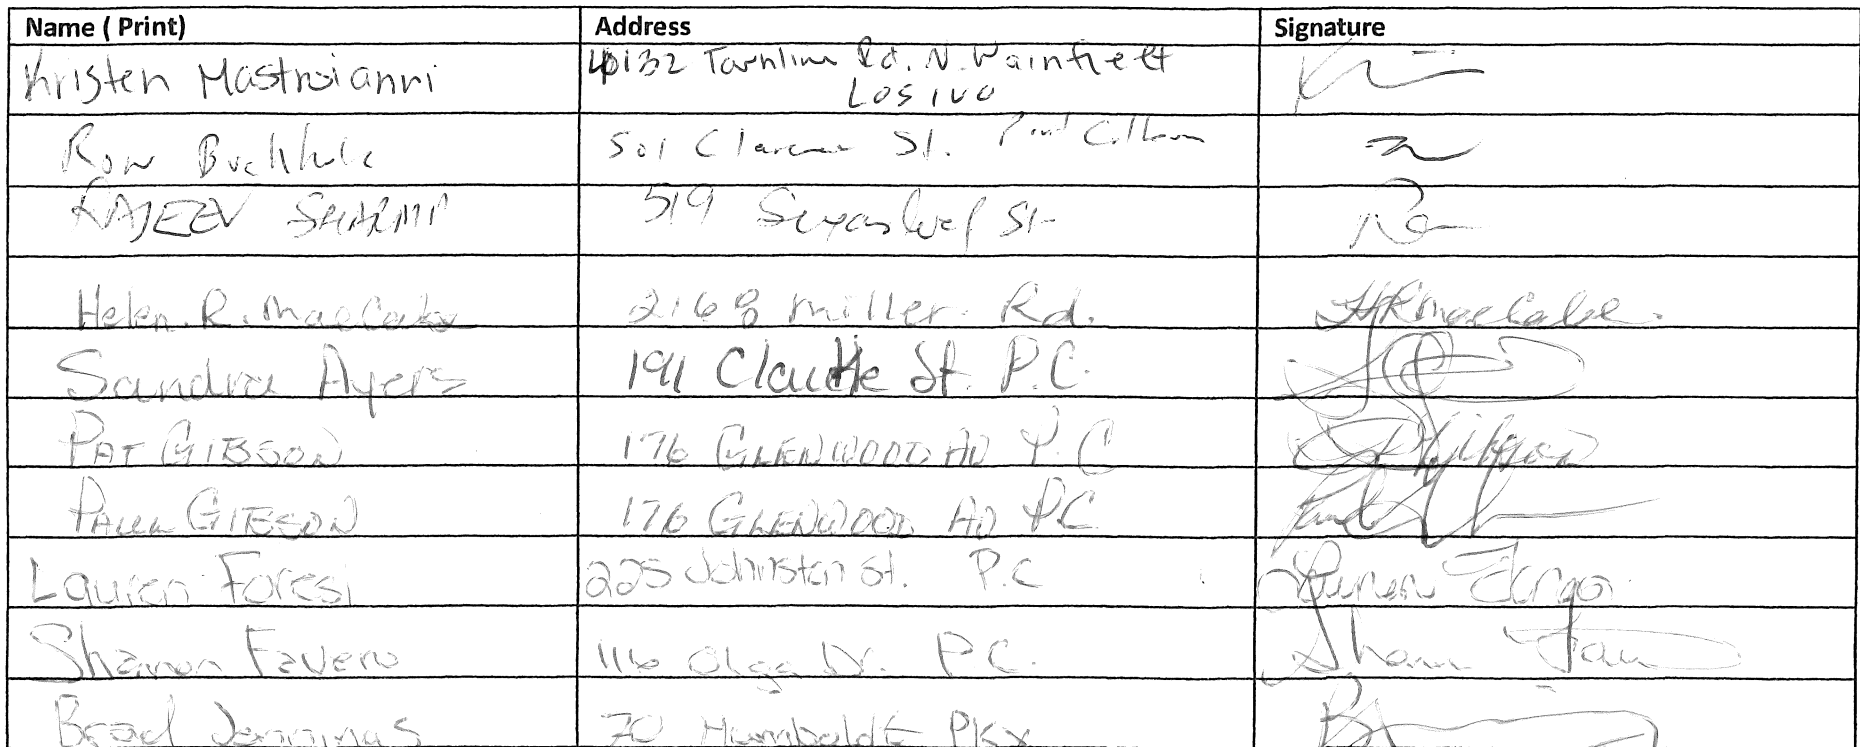 Name ( Print) Address Signature
Kristen Mastroianni 4132 Townline Rd. N. Wainfleet
LOS 1V0
Ron 501 Clarence St. Port Colborne
RAJEEV SHARMA 519 St
Helen. R. MacCabe 2168 Miller Rd. HRMacCabe.
Sandra Ayers 191 Clarke St. P.C.
PAT GIBSON 176 GLENWOOD AV P.C
PAUL GIBSON 176 GLENWOOD AV P.C
Lauren Foresi 225 Johnston St. P.C Lauren
Shannon Favero 116 Olga Dr. P.C.
Brad Jennings 70 Humboldt PKY